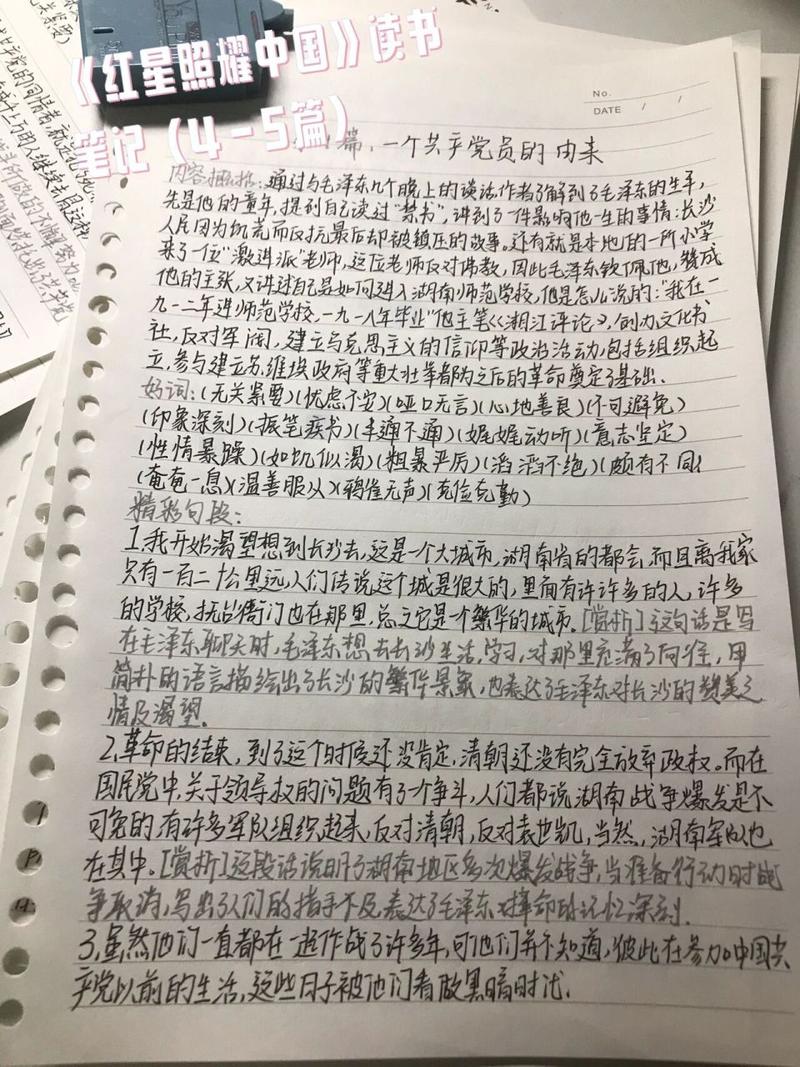 《红星照耀中国》读书
笔记（4-5篇）
No.
DATE / /
篇、一个共产党员的由来
内容概括：通过与毛泽东几个晚上的谈话,作者了解到了毛泽东的生平，
先是他的童年，提到自己读过“禁书”，讲到了一件影响他一生的事情：长沙
人民因为饥荒而反抗最后却被镇压的故事。还有就是本地的一所小学
来了一位“激进派”老师，这位老师反对佛教，因此毛泽东钦佩他，赞成
他的主张，又讲过自己是如何进入湖南师范学校，他是怎么说的：“我在一
九一二年进师范学校，一九一八年毕业”他主笔《湘江评论》，创办文化书
社，反对军阀，建立马克思主义的信仰等政治活动，包括组织起
立，参与建立苏维埃政府等重大壮举都为之后的革命奠定了基础.
好词：(无关紧要)(忧虑不安)(哑口无言)(心地善良)(不可避免)
(印象深刻)(振笔疾书)(半通不通)(娓娓动听)(意志坚定)
(性情暴躁)(如饥似渴)(粗暴严厉)(滔滔不绝)(颇有不同)
(奄奄一息)(温善服从)(鸦雀无声)(克俭克勤)
精彩句段：
1.我开始渴望想到长沙去，这是一个大城市，湖南省的都会，而且离我家
只有一百二十公里远，人们传说这个城是很大的，里面有许许多多的人，许多
的学校，抚台衙门也在那里，总之它是个繁华的城市。[赏析]这句话是写
在毛泽东聊天时，毛泽东想去长沙生活，学习，对那里充满了向往，用
简朴的语言描绘出了长沙的繁华景象，也表达了毛泽东对长沙的赞美之
情及渴望.
2.革命的结束，到了这个时候还没肯定，清朝还没有完全放弃政权。而在
国民党中，关于领导权的问题有了个争斗，人们都说湖南战争爆发是不
可免的.有许多军队组织起来，反对清朝，反对袁世凯，当然，湖南军队也
在其中。[赏析]这段话说明了湖南地区多次爆发战争，当准备行动时战
争取消，写出了人们的措手不及，表达了毛泽东对革命的记忆深刻.
3.虽然他们一直都在一起作战了许多年，可他们并不知道，彼此在参加中国共
产党以前的生活，这些日子被他们看做黑暗时代.